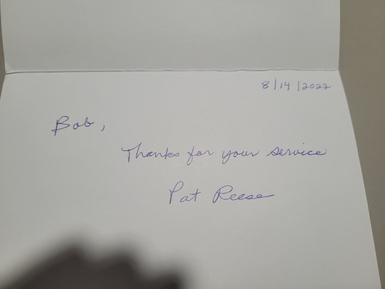 8/14/2022
Bob,
Thanks for your service
Pat Reese